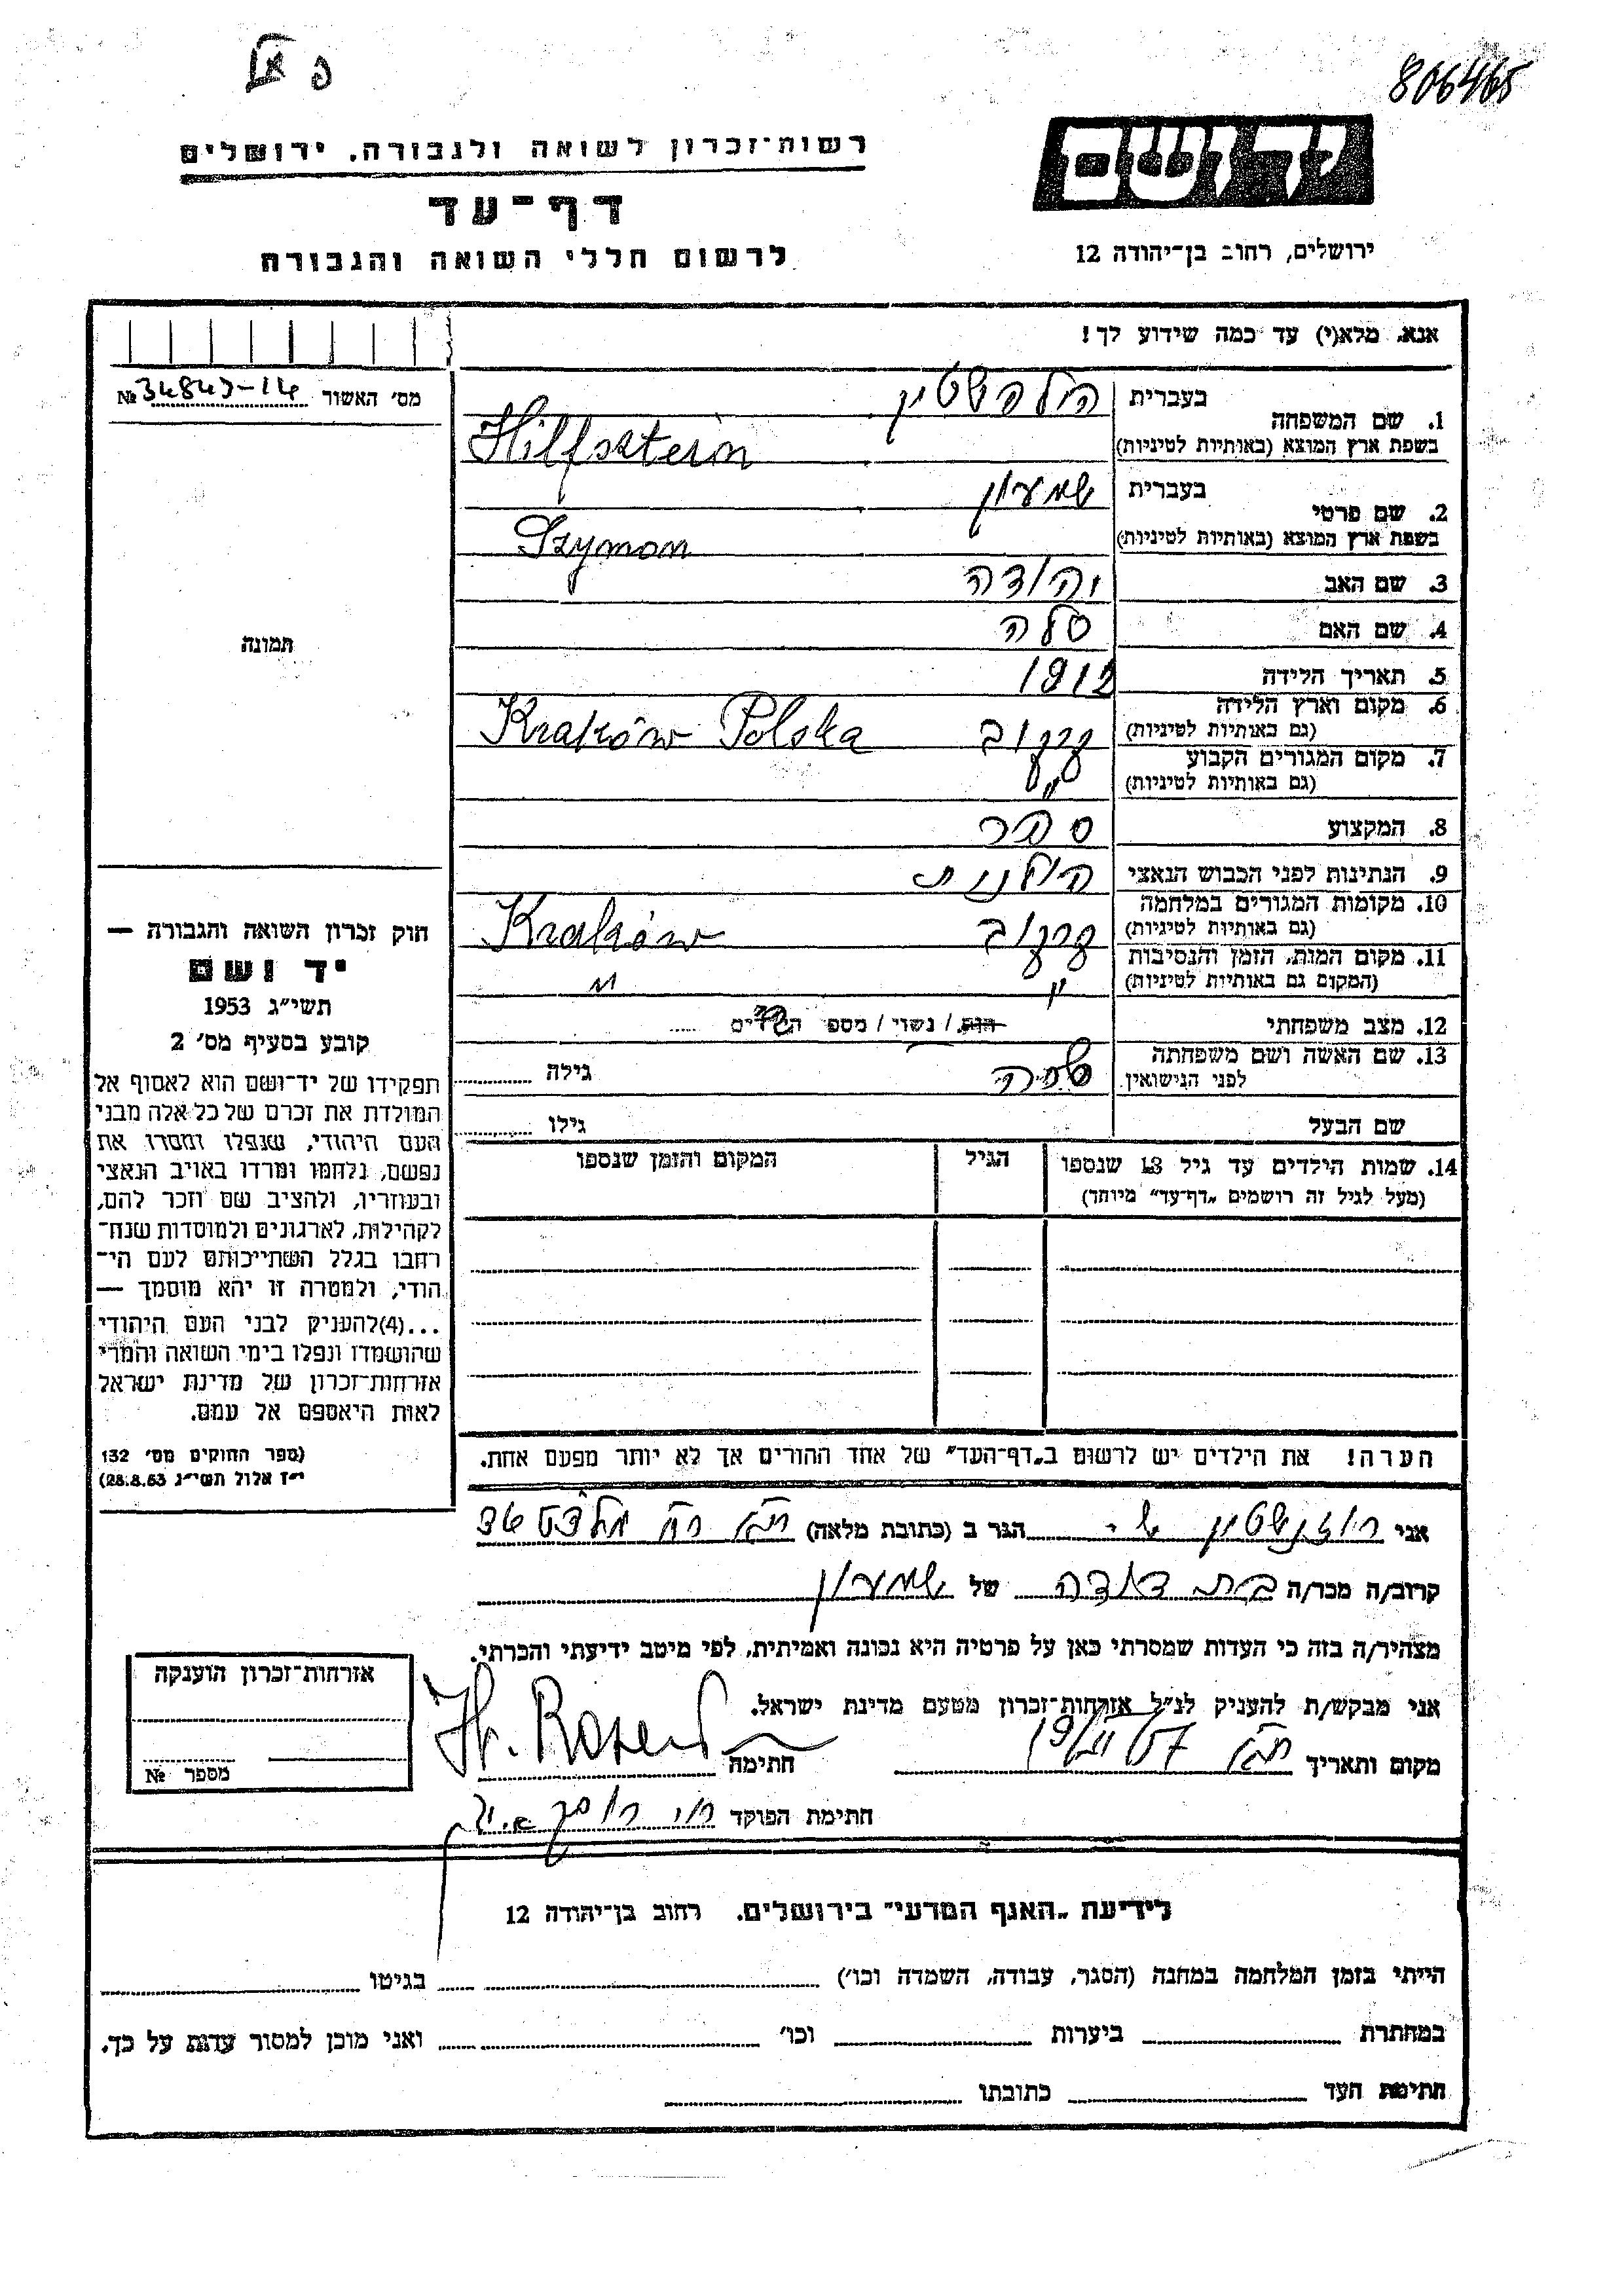 806465
רשות־זכרון לשואה ולגבורה, ירושלים
דף־עד
לרשום חללי השואה והגבורה
ידושם
ירושלים, רחוב בן־יהודה 12
אנא, מלא(י) עד כמה שידוע לך!
מס׳ האשור № 34843-14
תמונה
1. שם המשפחה בעברית הילפשטין
בשפת ארץ המוצא (באותיות לטיניות) Hilfsztein
2. שם פרטי בעברית שמעון
בשפת ארץ המוצא (באותיות לטיניות) Szymon
3. שם האב יהודה
4. שם האם
5. תאריך הלידה
6. מקום וארץ הלידה (גם באותיות לטיניות) קרקוב Kraków Polska
7. מקום המגורים הקבוע (גם באותיות לטיניות) ״
8. המקצוע
9. הנתינות לפני הכבוש הנאצי פולנית
10. מקומות המגורים במלחמה (גם באותיות לטיניות) קרקוב Kraków
11. מקום המות, הזמן והנסיבות (המקום גם באותיות לטיניות) ״ ״
12. מצב משפחתי רווק / נשוי / מספר הילדים
13. שם האשה ושם משפחתה לפני הנישואין גילה
שם הבעל גילו
14. שמות הילדים עד גיל 18 שנספו הגיל המקום והזמן שנספו
(מעל לגיל זה רושמים „דף־עד״ מיוחד)
הערה! את הילדים יש לרשום ב„דף־העד״ של אחד ההורים אך לא יותר מפעם אחת.
חוק זכרון השואה והגבורה —
יד ושם
תשי״ג 1953
קובע בסעיף מס׳ 2
תפקידו של יד־ושם הוא לאסוף אל
המולדת את זכרם של כל אלה מבני
העם היהודי, שנפלו ומסרו את
נפשם, נלחמו ומרדו באויב הנאצי
ובעוזריו, ולהציב שם וזכר להם,
לקהילות, לארגונים ולמוסדות שנח־
רבו בגלל השתייכותם לעם הי־
הודי, ולמטרה זו יהא מוסמך —
...(4) להעניק לבני העם היהודי
שהושמדו ונפלו בימי השואה והמרי
אזרחות־זכרון של מדינת ישראל
לאות היאספם אל עמם.
(ספר החוקים מס׳ 132
י״ז אלול תשי״ג 28.8.53)
אני רוזנשטין הגר ב (כתובת מלאה) ת״א רח׳
קרוב/ה מכר/ה בת דודה של שמעון
מצהיר/ה בזה כי העדות שמסרתי כאן על פרטיה היא נכונה ואמיתית, לפי מיטב ידיעתי והכרתי.
אני מבקש/ת להעניק לנ״ל אזרחות־זכרון מטעם מדינת ישראל.
מקום ותאריך ת״א חתימה
חתימת הפוקד
אזרחות־זכרון הוענקה
מספר №
לידיעת „האגף המדעי״ בירושלים, רחוב בן־יהודה 12
הייתי בזמן המלחמה במחנה (הסגר, עבודה, השמדה וכו׳) בגיטו
במחתרת ביערות וכו׳ ואני מוכן למסור עדות על כך.
חתימת העד כתובתו